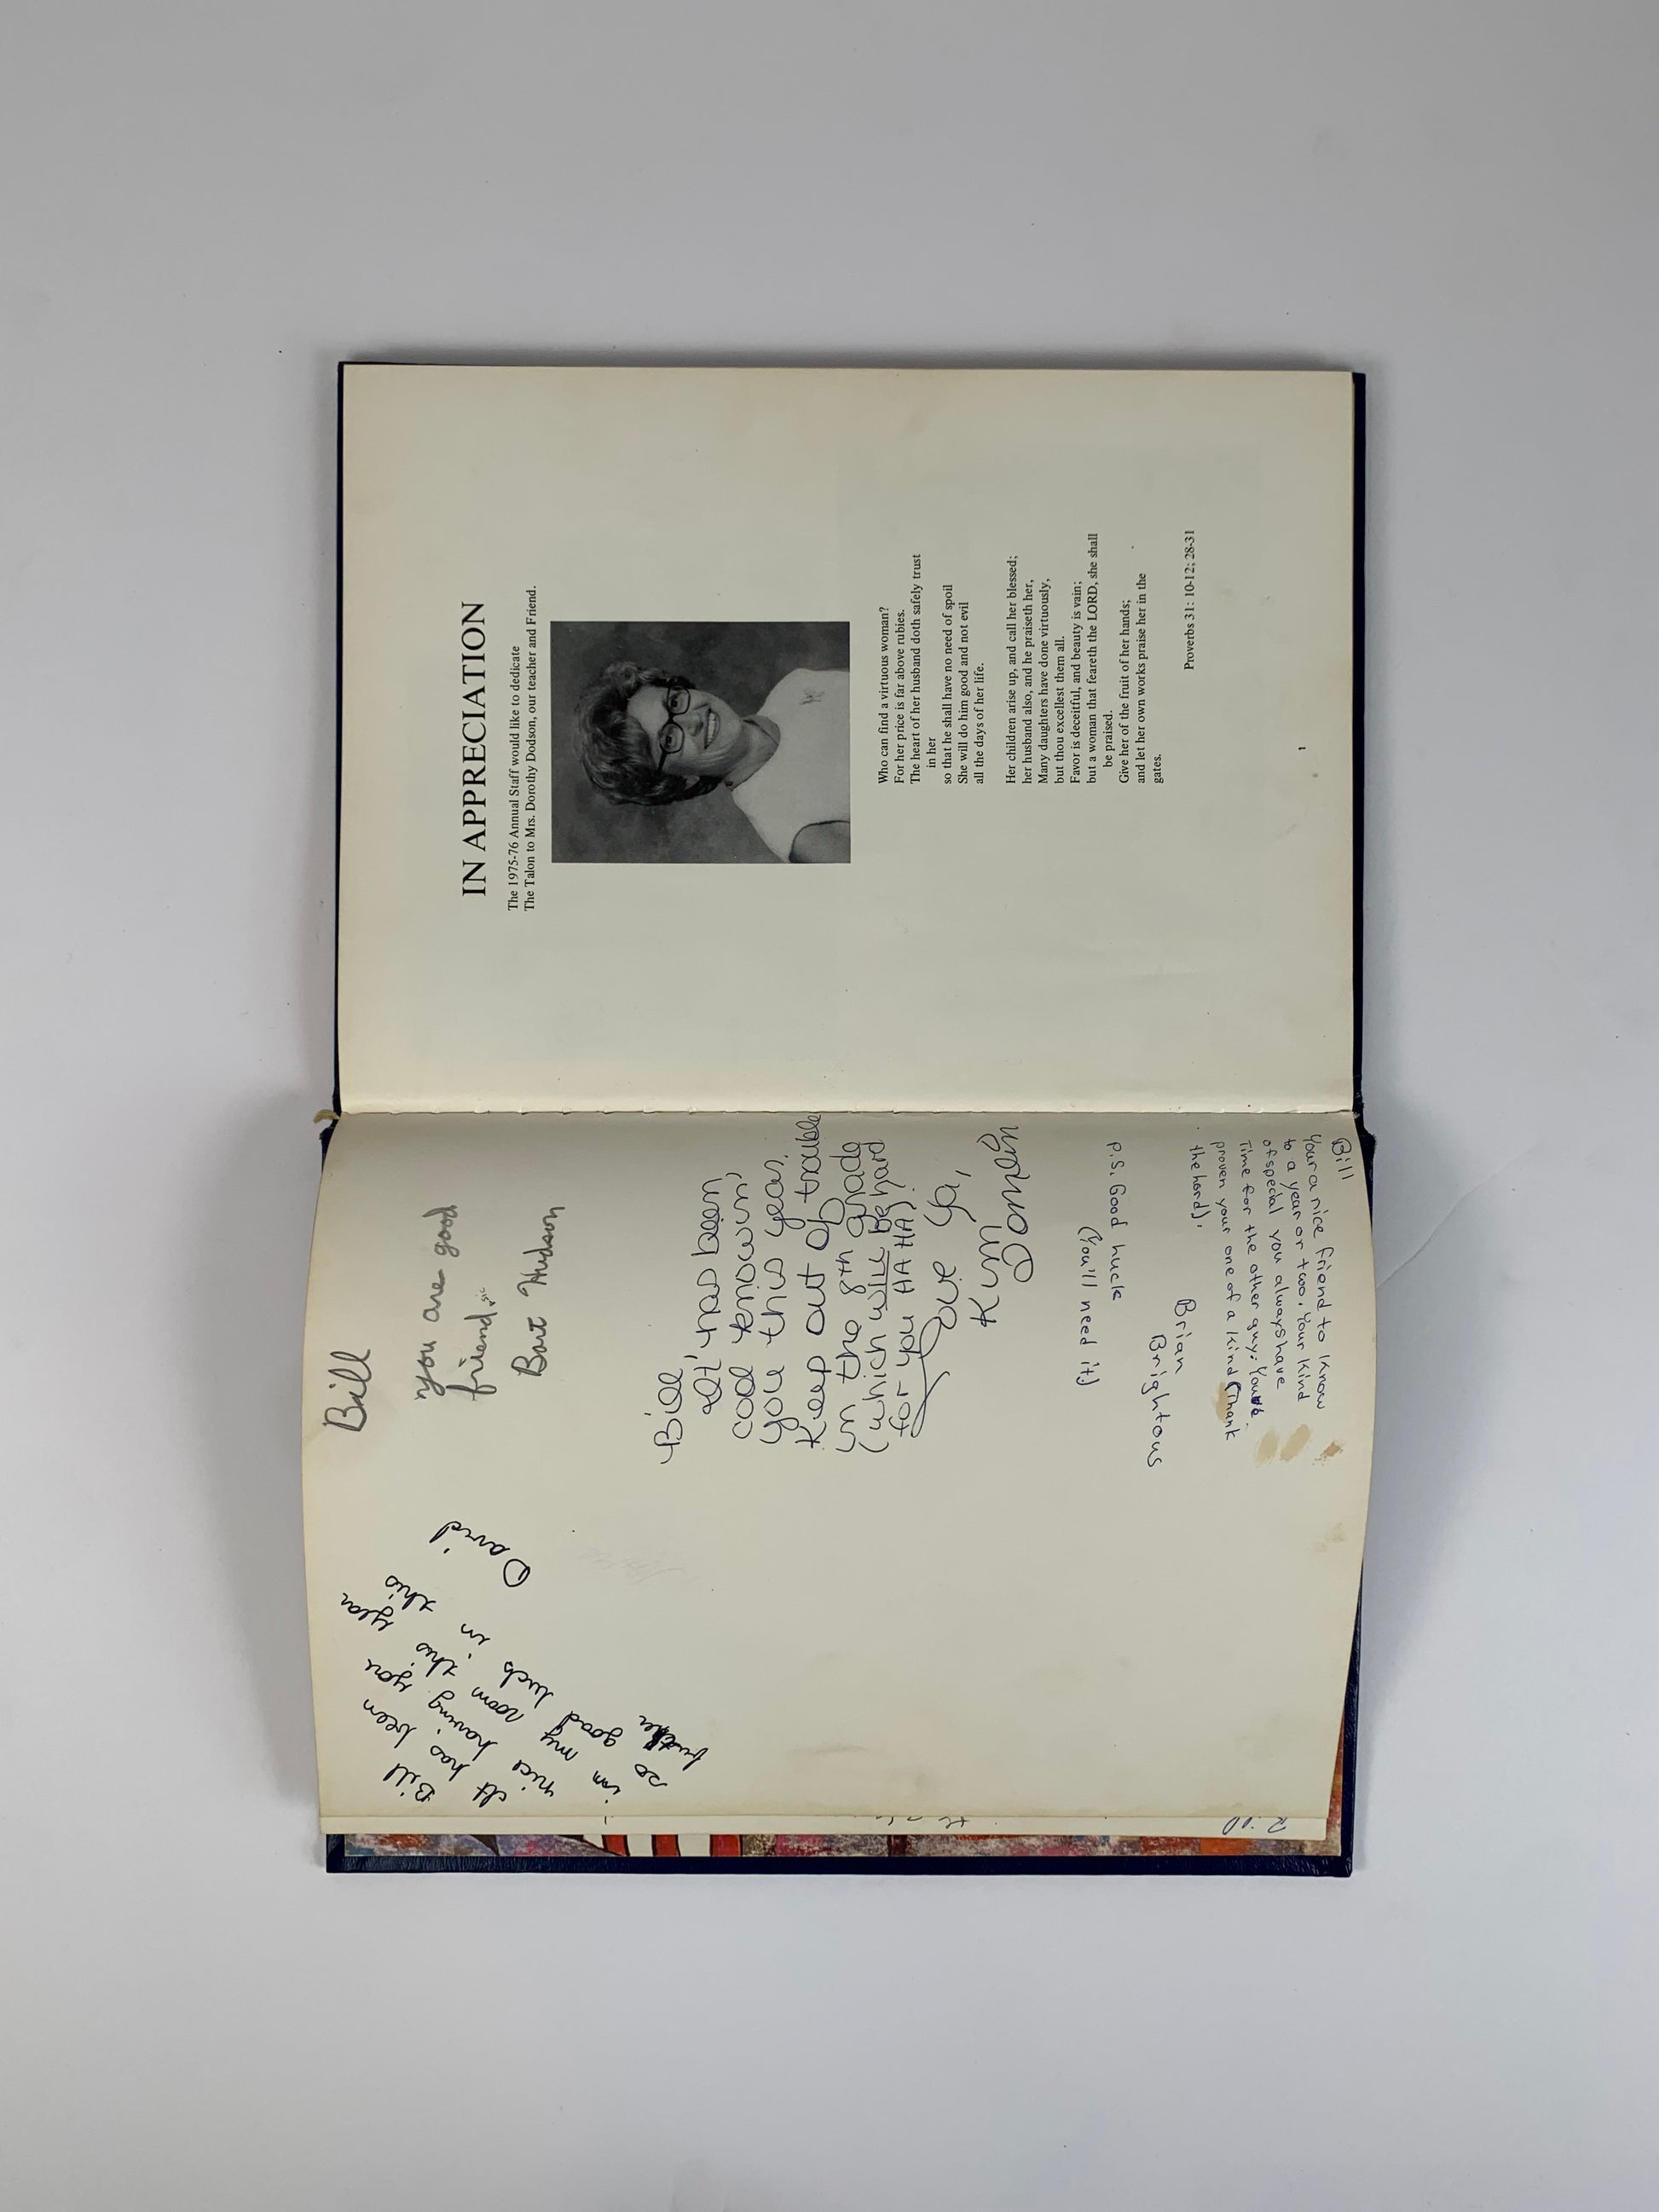 Bill
It has been
nice having you
in my room this year
so good luck in this
David
Bill
you are good
friend.
Bart Hudson
Bill
It has been
cool knowin'
you this year.
Keep out of trouble
in the 8th grade
(which will be hard
for you HA HA).
Love Ya,
Kim
Bill
Your a nice friend to know
to a year or two, your kind
of special you always have
Time for the other guy.
proven your one of a kind (Thank
the lord).
Brian
Brightons
P.S. Good huck
(you'll need it)
IN APPRECIATION
The 1975-76 Annual Staff would like to dedicate
The Talon to Mrs. Dorothy Dodson, our teacher and Friend.
Who can find a virtuous woman?
For her price is far above rubies.
The heart of her husband doth safely trust
in her
so that he shall have no need of spoil
She will do him good and not evil
all the days of her life.
Her children arise up, and call her blessed;
her husband also, and he praiseth her,
Many daughters have done virtuously,
but thou excellest them all.
Favor is deceitful, and beauty is vain;
but a woman that feareth the LORD, she shall
be praised.
Give her of the fruit of her hands;
and let her own works praise her in the
gates.
Proverbs 31: 10-12; 28-31
1